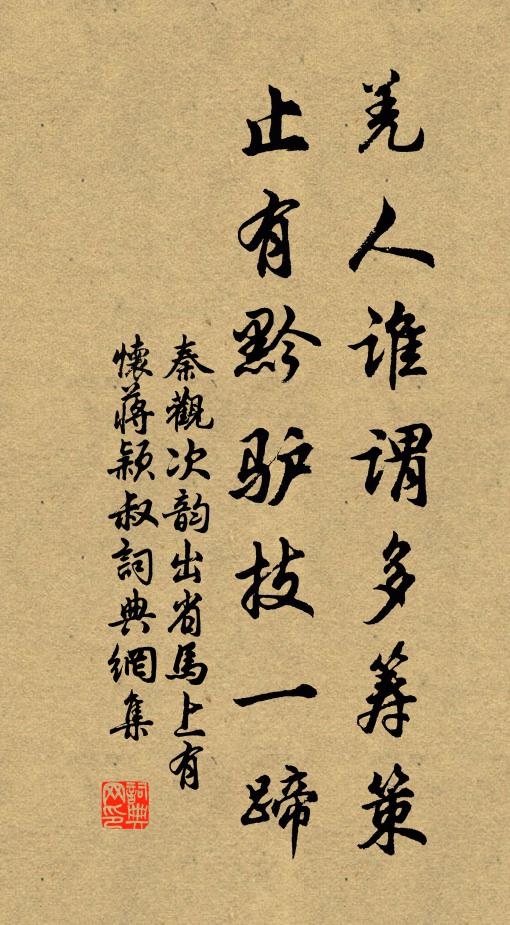 羌人谁谓多筹策
止有黔驴技一蹄
秦觀次韵出省馬上有
懷蔣颖叔詞典網集
詞典网印